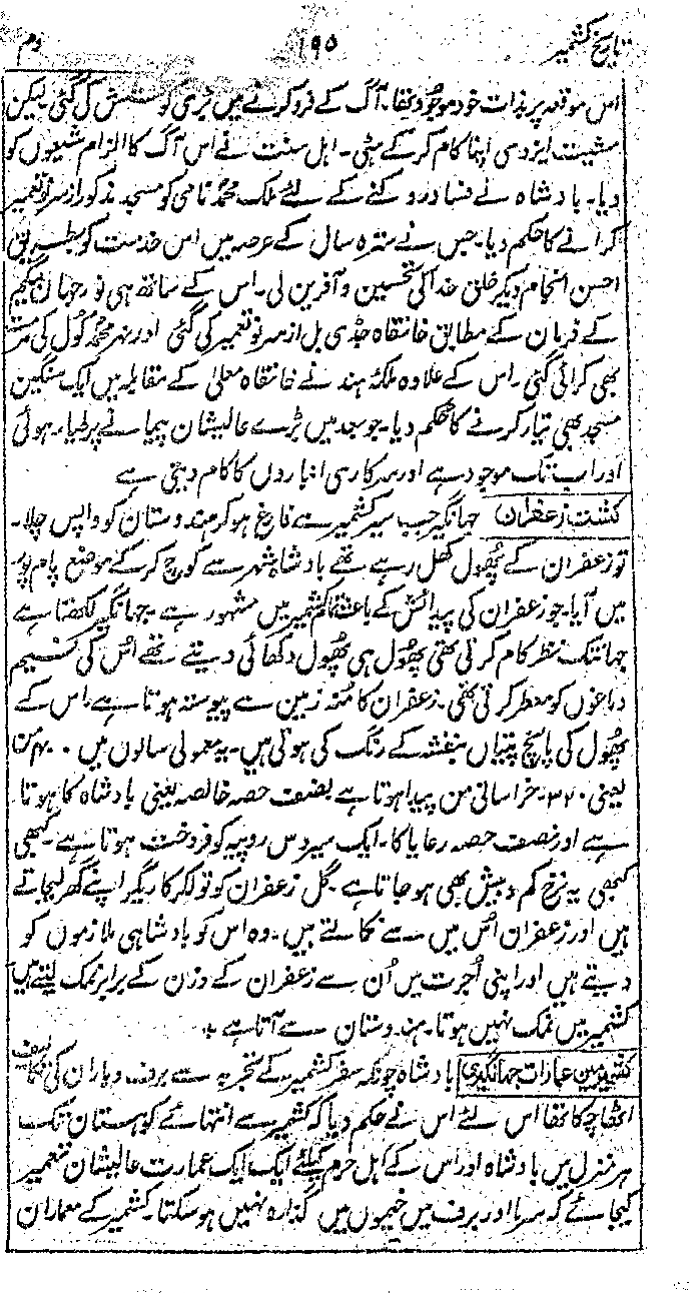 تاریخ کشمیر ۱۹۵ دم
اس موقعہ پر بذات خود موجود تھا۔ آگ کے فرو کرنے میں بڑی کوشش کی گئی لیکن
مشیت ایزدی اپنا کام کر کے ہٹی۔ اہل سنت نے اس آگ کا الزام شیعوں کو
دیا۔ بادشاہ نے فساد روکنے کے لئے ملک محمد ناجی کو مسجد مذکور از سر نو تعمیر
کرانے کا حکم دیا۔ جس نے سترہ سال کے عرصہ میں اس خدمت کو بطریق
احسن انجام دیکر خلق خدا کی تحسین و آفرین لی۔ اس کے ساتھ ہی نورجہاں بیگم
کے فرمان کے مطابق خانقاہ جڈی بل از سر نو تعمیر کی گئی اور نہر محمد کول کی مرمت
بھی کرائی گئی۔ اس کے علاوہ ملکۂ ہند نے خانقاہ معلیٰ کے مقابلہ میں ایک سنگین
مسجد بھی تیار کرنے کا حکم دیا۔ جو بعد میں بڑے عالیشان پیمانے پر طیار ہوئی
اور اب تک موجود ہے اور سرکاری انباروں کا کام دیتی ہے
کشت زعفران جہانگیر جب سیر کشمیر سے فارغ ہو کر ہندوستان کو واپس چلا۔
تو زعفران کے پھول کھل رہے تھے بادشاہ شہر سے کوچ کر کے موضع پام پور
میں آیا۔ جو زعفران کی پیدائش کے باعث تمام کشمیر میں مشہور ہے۔ جہانگیر لکھتا ہے
جہانتک نظر کام کرتی تھی پھول ہی پھول دکھائی دیتے تھے اس کی نسیم
دماغوں کو معطر کرتی تھی۔ زعفران کا تنہ زمین سے پیوستہ ہوتا ہے۔ اس کے
پھول کی پانچ پتیاں بنفشہ کے رنگ کی ہوتی ہیں۔ یہ معمولی سالوں میں من
یعنی ۳۲۰۰ خراسانی من پیدا ہوتا ہے نصف حصہ خالصہ یعنی بادشاہ کا ہوتا
ہے اور نصف حصہ رعایا کا۔ ایک سیر دس روپیہ کو فروخت ہوتا ہے۔ کبھی
کبھی یہ نرخ کم و بیش بھی ہو جاتا ہے۔ گل زعفران کو تولکر کاریگر اپنے گھر لیجاتے
ہیں اور زعفران اس میں سے نکالتے ہیں۔ وہ اس کو بادشاہی ملازموں کو
دیتے ہیں اور اپنی اجرت میں اُن سے زعفران کے وزن کے برابر نمک لیتے ہیں
کشمیر میں نمک نہیں ہوتا۔ ہندوستان سے آتا ہے +
کشمیر میں عمارات جہانگیری بادشاہ چونکہ سفر کشمیر کے تجربہ سے برف و باران کی تکالیف
اٹھا چکا تھا اس لئے اس نے حکم دیا کہ کشمیر سے انتہائے کوہستان تک
ہر منزل میں بادشاہ اور اس کے اہل حرم کیلئے ایک ایک عمارت عالیشان تعمیر
کیجائے کہ سرما اور برف میں خیموں میں گذارہ نہیں ہو سکتا۔ کشمیر کے معماران